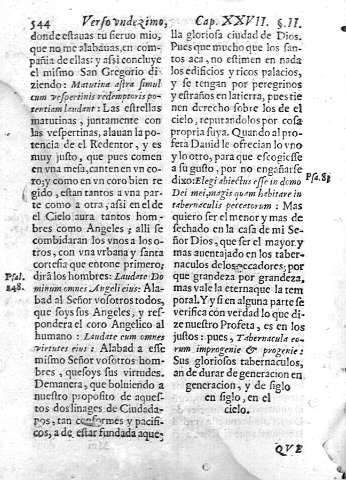 544 Verso vndezimo, Cap. XXVII. §. II.
donde estauas tu sieruo mio,
que no me alabauas, en com-
pañia de ellas: y assi concluye
el mismo San Gregorio di-
ziendo: Matutina astra simul
cum vespertinis redemptoris po-
tentiam laudent: Las estrellas
matutinas, juntamente con
las vespertinas, alauan la po-
tencia de el Redentor, y es
muy justo, que pues comen
en vna mesa, canten en vn co-
ro; y como en vn coro bien re
gido, estan tantos a vna par-
te como a otra, assi en el de
el Cielo aura tantos hom-
bres como Angeles; alli se
combidaran los vnos a los o-
tros, con vna vrbana y santa
cortesia que entone primero;
Psal. 148.
dirà los hombres: Laudate Do
minum omnes Angeli eius: Ala-
bad al Señor vosotros todos,
que soys sus Angeles, y res-
pondera el coro Angelico al
humano: Laudate eum omnes
virtutes eius: Alabad a esse
mismo Señor vosotros hom-
bres, que soys sus virtudes.
Demanera, que boluiendo a
nuestro proposito de aques-
tos dos linages de Ciudada-
nos, tan conformes y pacifi-
cos, a de estar fundada aque-
lla gloriosa ciudad de Dios.
Pues que mucho que los san-
tos aca, no estimen en nada
los edificios y ricos palacios,
y se tengan por peregrinos
y estraños en la tierra, pues tie
nen derecho sobre los de el
cielo, reputandolos por cosa
propria suya. Quando al pro-
feta Dauid le ofrecian lo vno
y lo otro, para que escogiesse
a su gusto, por no engañarse
dixo: Elegi abiectus esse in domo
Psa. 83
Dei mei, magis quam habitare in
tabernaculis peccatorum: Mas
quiero ser el menor y mas de
sechado en la casa de mi Se-
ñor Dios, que ser el mayor y
mas auentajado en los taber-
naculos de los pecadores; por
que grandeza por grandeza,
mas vale la eterna que la tem
poral. Y si en alguna parte se
verifica con verdad lo que di-
ze nuestro Profeta, es en los
justos: pues, Tabernacula eo-
rum in progenie & progenie:
Sus gloriosos tabernaculos,
an de durar de generacion en
generacion, y de siglo
en siglo, en el
cielo.
QVE